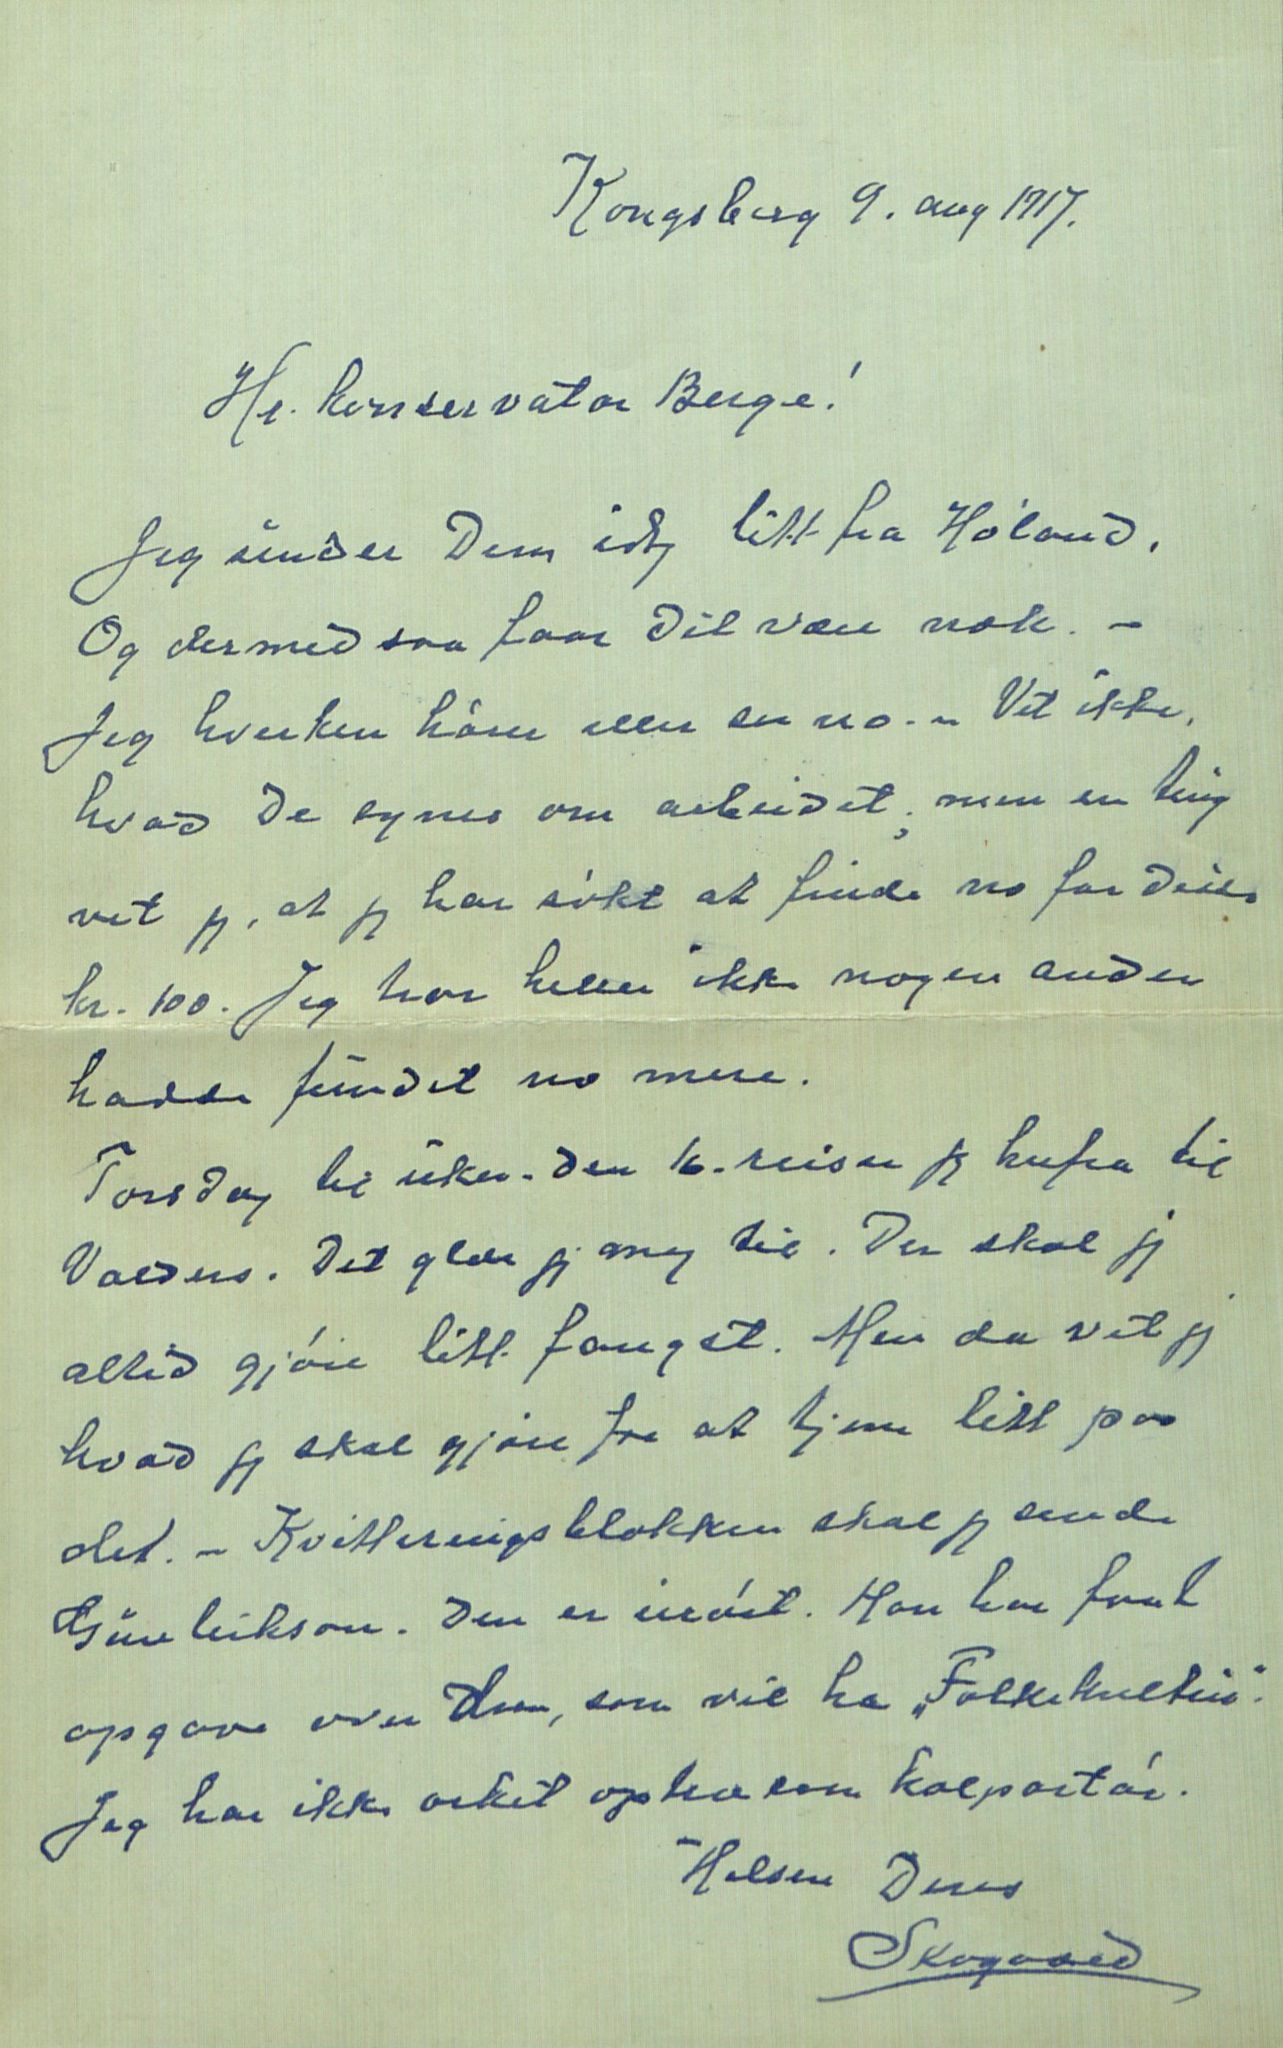 Kongsberg 9. aug 1917.
Hr. konservator Berge!
Jeg sender Dem idag litt fra Hóland.
Og dermed saa faar det være nok. –
Jeg hverken hörer eller ser no. – Vet ikke,
hvad De synes om arbeidet; men en ting
vet jeg, at jeg har sökt at finde no for disse
kr. 100. Jeg tror heller ikke nogen anden
hadde fundet no mere.
Torsdag til uken. den 16. reiser jeg herfra til
Valdres. Det glær jeg mig til. Der skal jeg
altid gjöre litt fangst. Men da vet jeg
hvad jeg skal gjöre for at tjene litt paa
det. – Kvitteringsblokken skal jeg sende
Gunleikson. Den er urört. Han har faat
opgave over dem, som vil ha „Folkekultur".
Jeg har ikke orket optræ som kolportör.
Helsen Deres
Skogaard